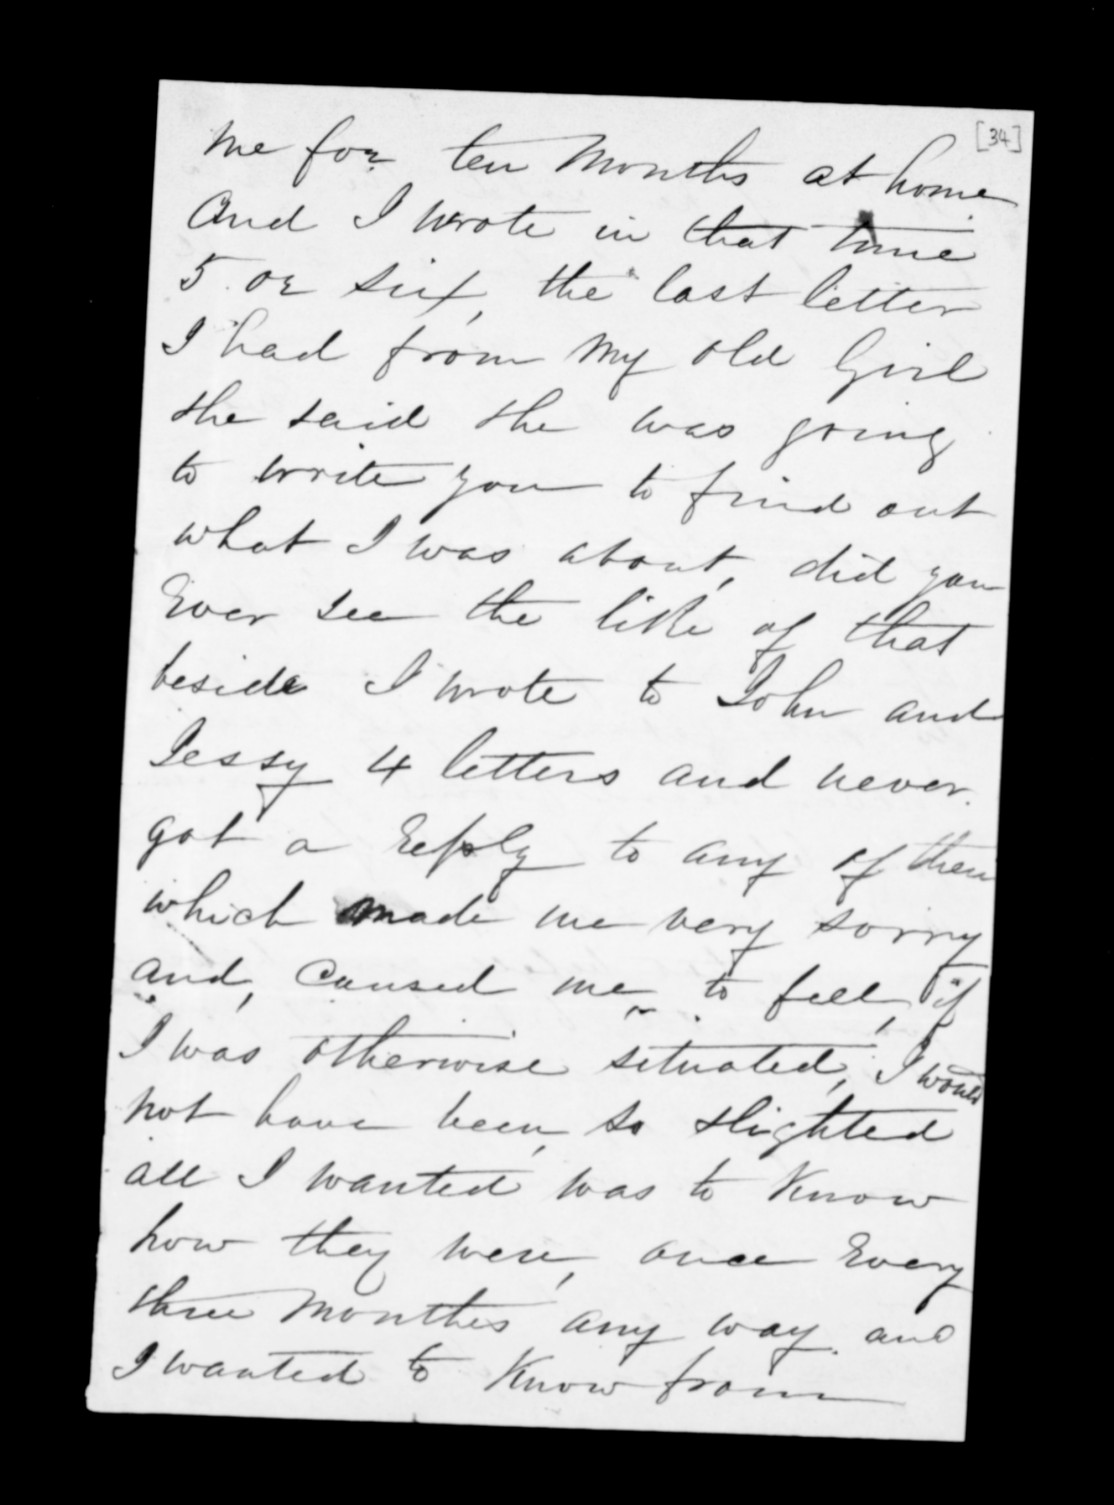 [34]
me for ten Months at home
and I wrote in that time
5 or six, the last letter
I had from My old Girl
she said she was going
to write you to find out
what I was about, did you
Ever see the like of that
beside I wrote to John and
Jessy 4 letters and never.
got a Reply to any of them
which made me very sorry
and, caused me to feel, if
I was otherwise situated, I would
not have been, so slighted
all I wanted was to Know
how they were, once Every
three Months any way. and
I wanted to Know from